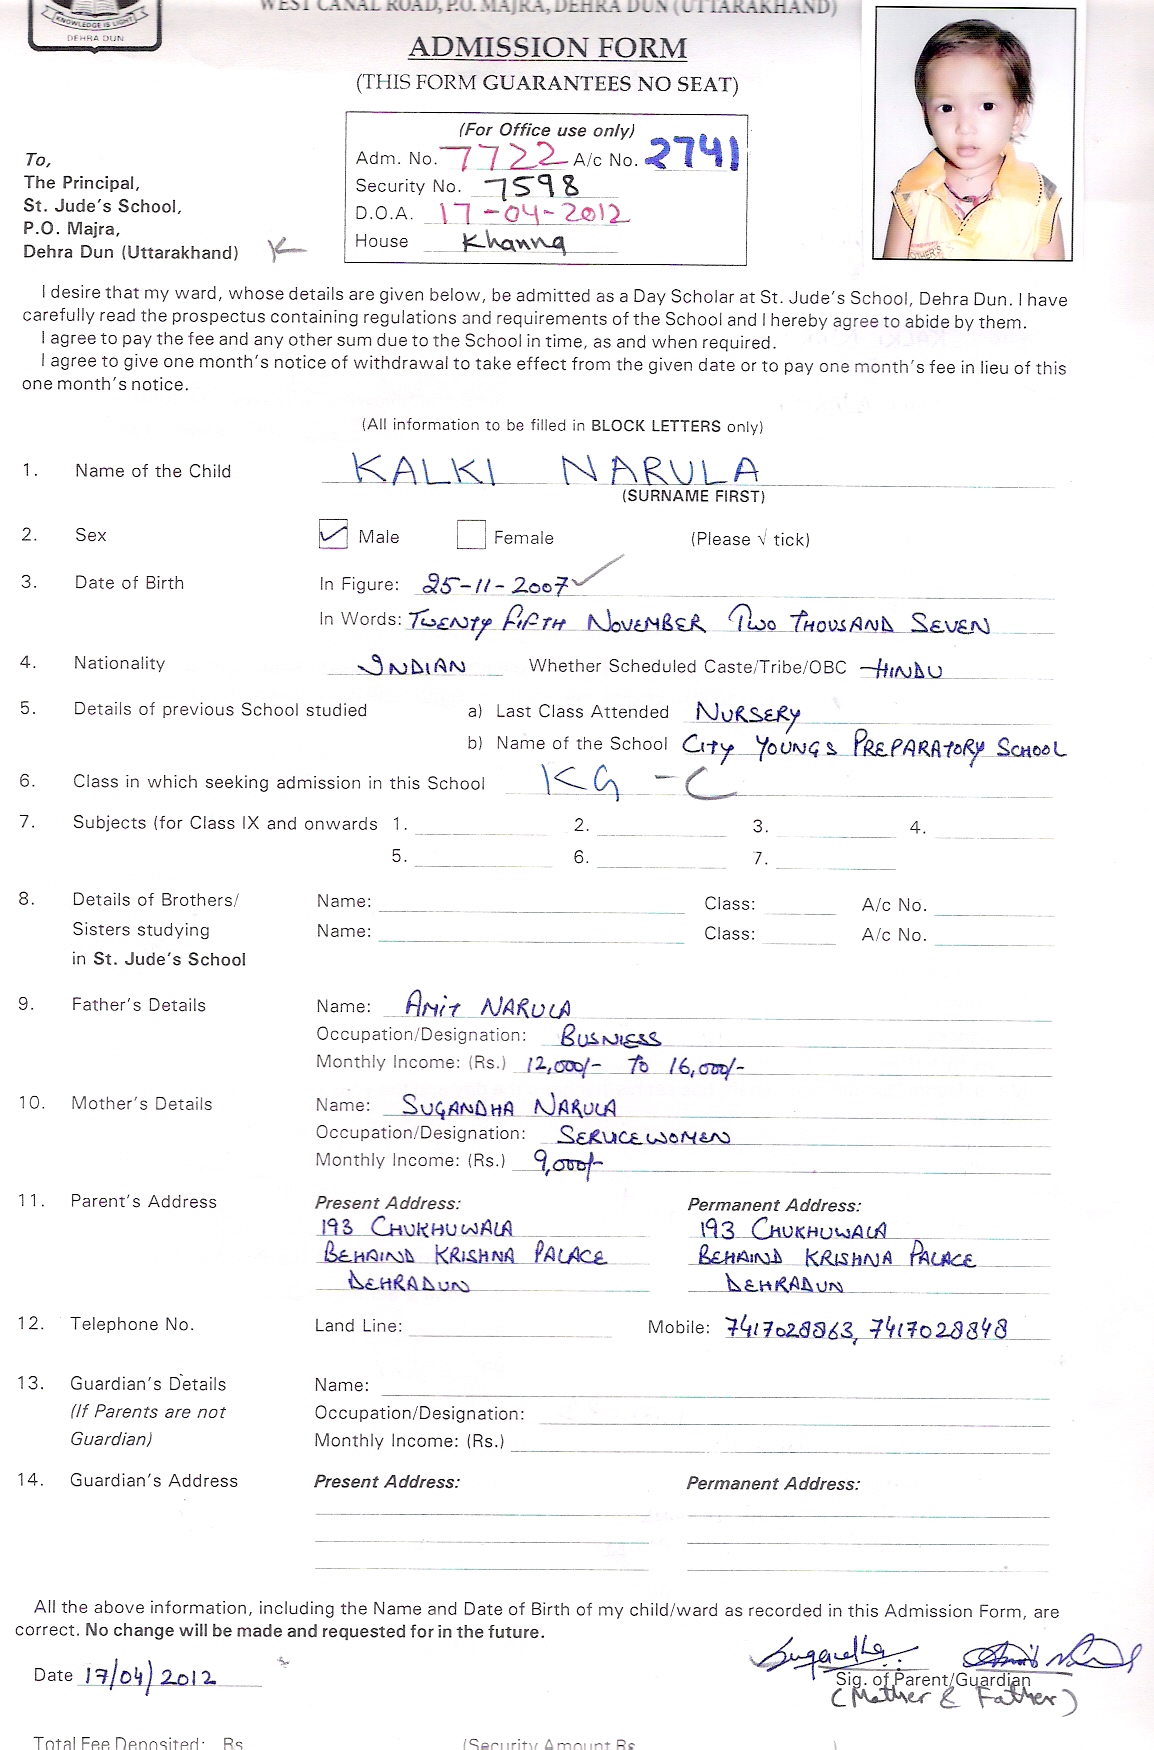 KNOWLEDGE IS LIGHT
DEHRA DUN
WEST CANAL ROAD, P.O. MAJRA, DEHRA DUN (UTTARAKHAND)
ADMISSION FORM
(THIS FORM GUARANTEES NO SEAT)
(For Office use only)
Adm. No. 7722 A/c No. 2741
Security No. 7598
D.O.A. 17-04-2012
House Khanna
To,
The Principal,
St. Jude's School,
P.O. Majra,
Dehra Dun (Uttarakhand)
I desire that my ward, whose details are given below, be admitted as a Day Scholar at St. Jude's School, Dehra Dun. I have
carefully read the prospectus containing regulations and requirements of the School and I hereby agree to abide by them.
I agree to pay the fee and any other sum due to the School in time, as and when required.
I agree to give one month's notice of withdrawal to take effect from the given date or to pay one month's fee in lieu of this
one month's notice.
(All information to be filled in BLOCK LETTERS only)
1. Name of the Child KALKI NARULA
(SURNAME FIRST)
2. Sex ✓ Male Female (Please √ tick)
3. Date of Birth In Figure: 25-11-2007
In Words: TWENTY FIFTH NOVEMBER TWO THOUSAND SEVEN
4. Nationality INDIAN Whether Scheduled Caste/Tribe/OBC HINDU
5. Details of previous School studied a) Last Class Attended NURSERY
b) Name of the School CITY YOUNGS PREPARATORY SCHOOL
6. Class in which seeking admission in this School KG - C
7. Subjects (for Class IX and onwards 1. 2. 3. 4.
5. 6. 7.
8. Details of Brothers/ Name: Class: A/c No.
Sisters studying Name: Class: A/c No.
in St. Jude's School
9. Father's Details Name: AMIT NARULA
Occupation/Designation: BUSNIESS
Monthly Income: (Rs.) 12,000/- TO 16,000/-
10. Mother's Details Name: SUGANDHA NARULA
Occupation/Designation: SERVICEWOMEN
Monthly Income: (Rs.) 9,000/-
11. Parent's Address Present Address: Permanent Address:
193 CHUKHUWALA 193 CHUKHUWALA
BEHAIND KRISHNA PALACE BEHAIND KRISHNA PALACE
DEHRADUN DEHRADUN
12. Telephone No. Land Line: Mobile: 7417028863, 7417028848
13. Guardian's Details Name:
(If Parents are not Occupation/Designation:
Guardian) Monthly Income: (Rs.)
14. Guardian's Address Present Address: Permanent Address:
All the above information, including the Name and Date of Birth of my child/ward as recorded in this Admission Form, are
correct. No change will be made and requested for in the future.
Sugandha
Date 17/04/2012 Sig. of Parent/Guardian
(Mother & Father)
Total Fee Deposited: Rs (Security Amount Rs